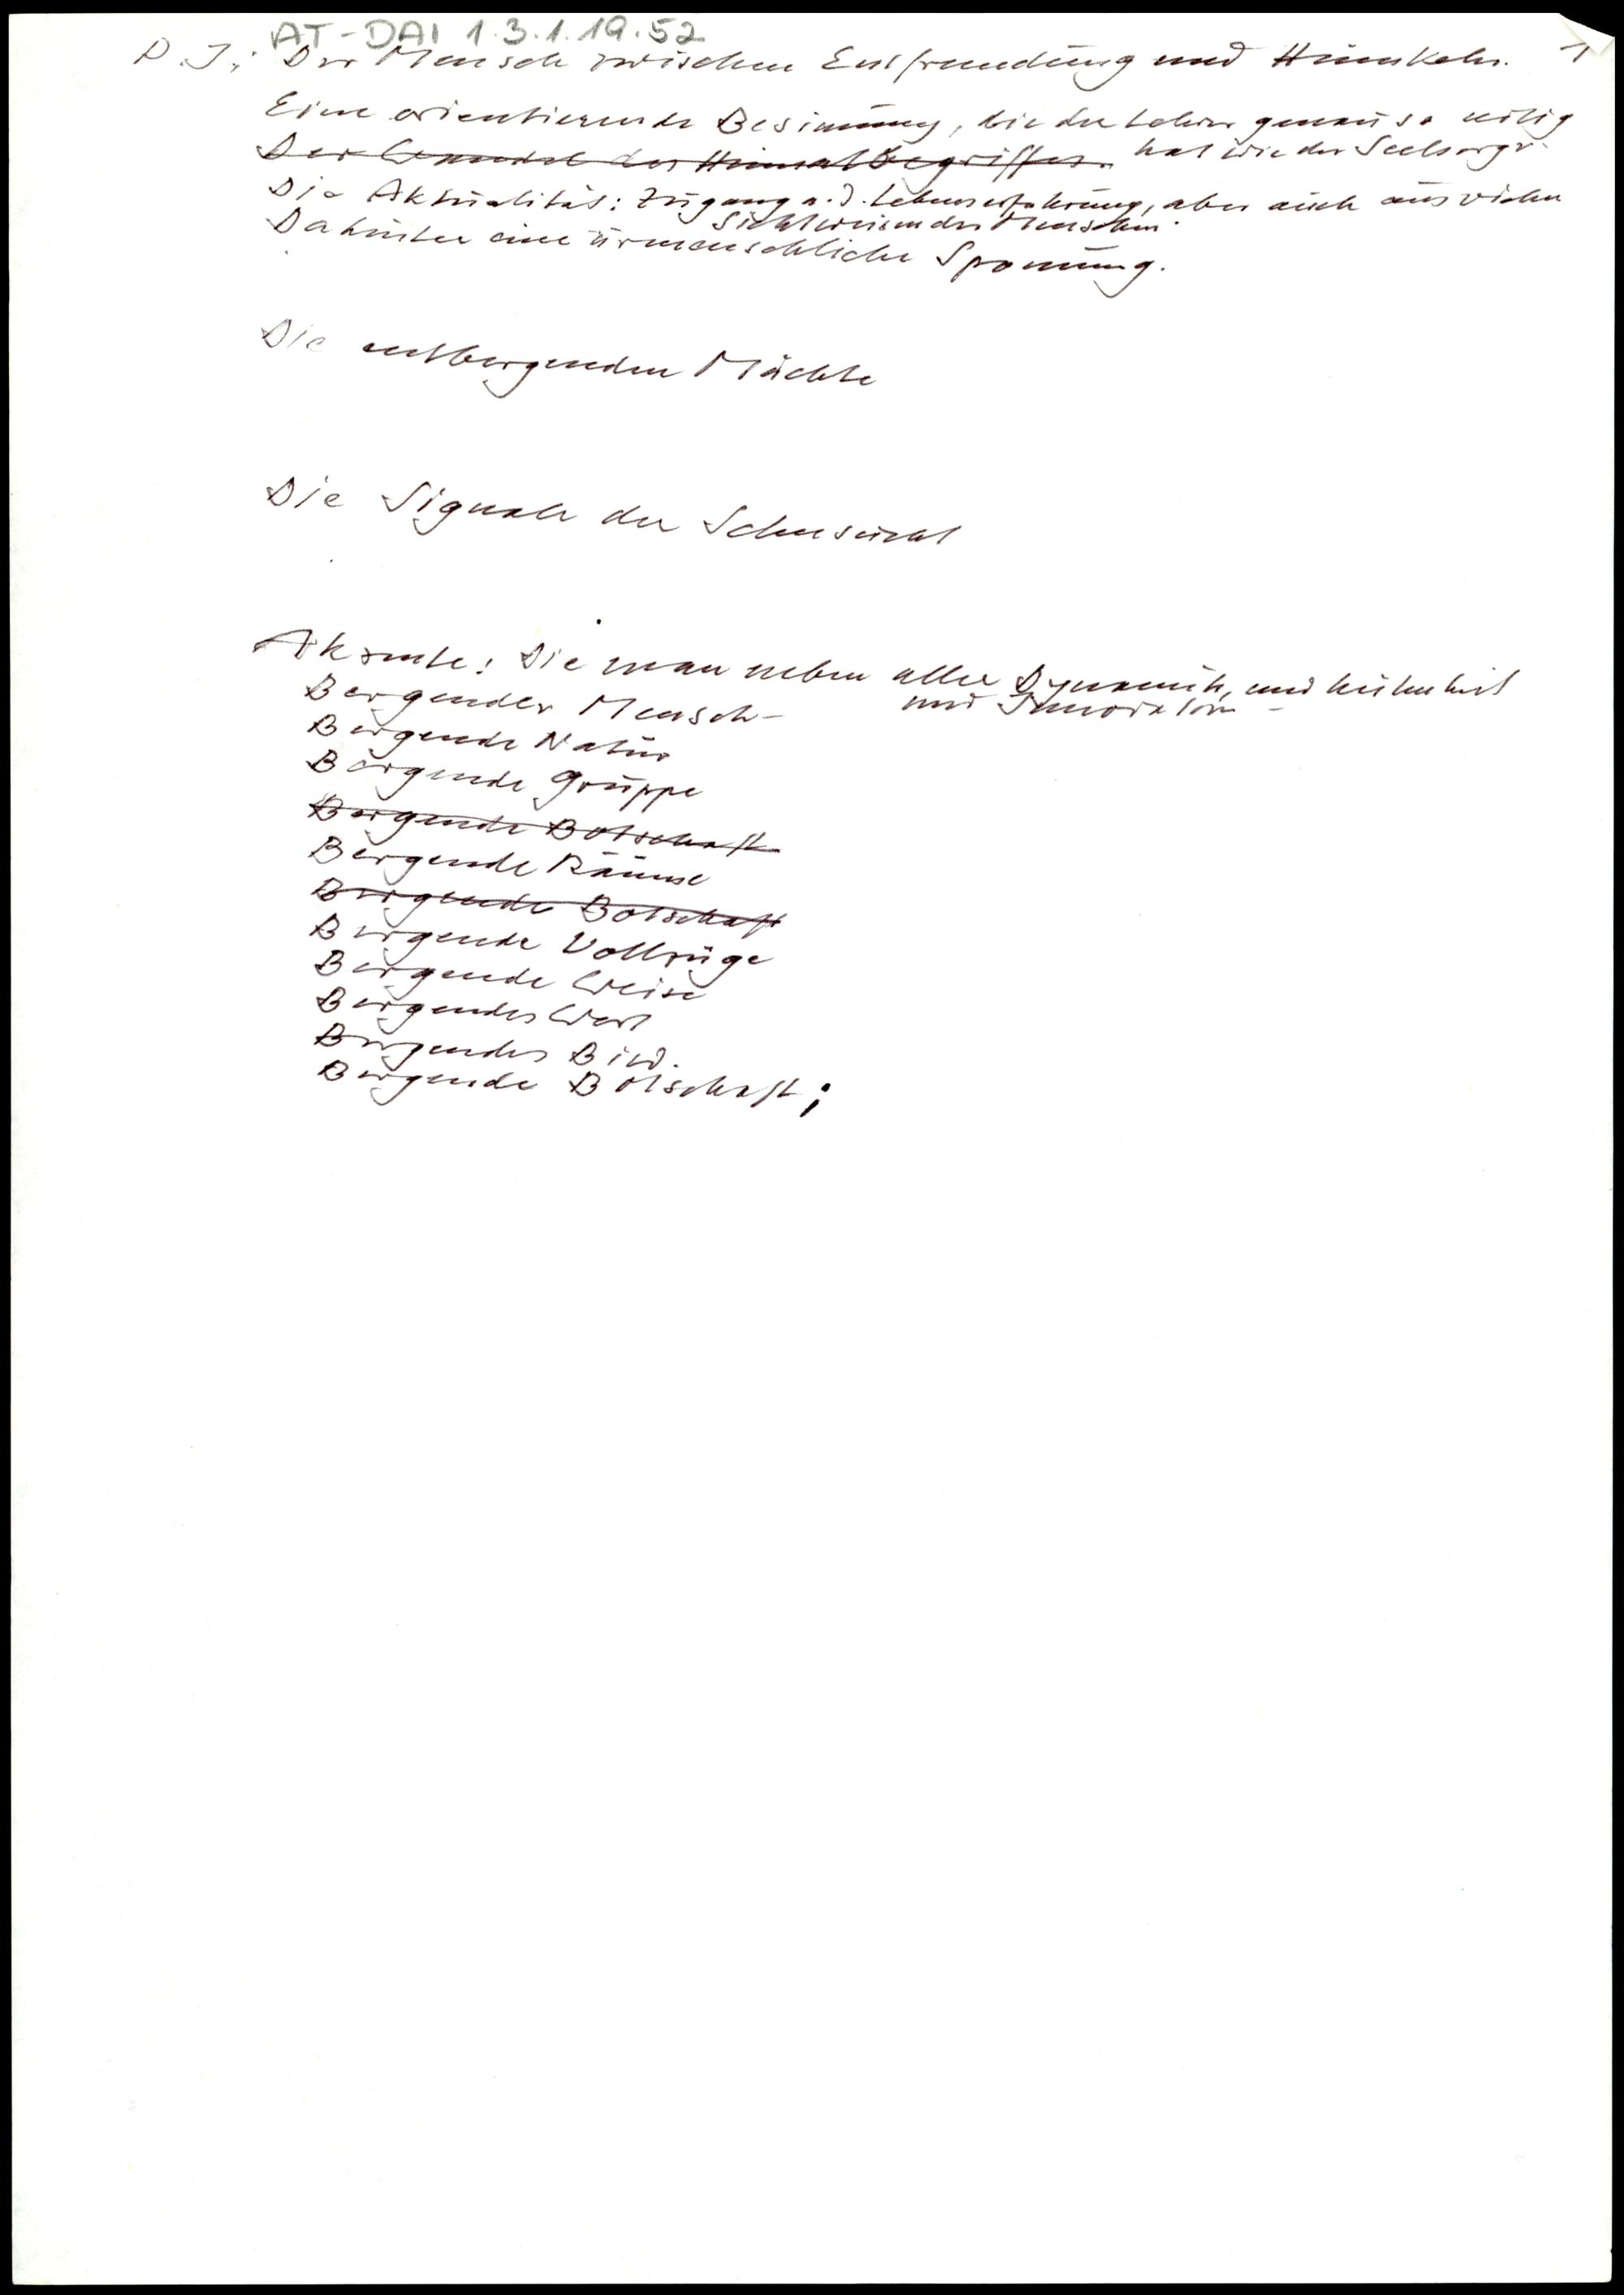 AT-DAI 1.3.1.19.52
P. I.: Der Mensch zwischen Entfremdung und Heimkehr. 1
Eine orientierende Besinnung, die der Lehrer genau so nötig
hat wie der Seelsorger.
Der Wandel des Heimatbegriffes.
Die Aktualität: Zugang a. d. Lebenserfahrung, aber auch aus vielen
Sichtweisen des Menschen.
Dahinter eine urmenschliche Spannung.
Die entbergenden Mächte
Die Signale der Sehnsucht
Akzente: Die man neben aller Dynamik, und
und Innovation -
Bergender Mensch -
Bergende Natur
Bergende Gruppe
Bergende Botschaft
Bergende Räume
Bergende Botschaft
Bergende Vollzüge
Bergende Weise
Bergendes Wort
Bergendes Bild.
Bergende Botschaft;